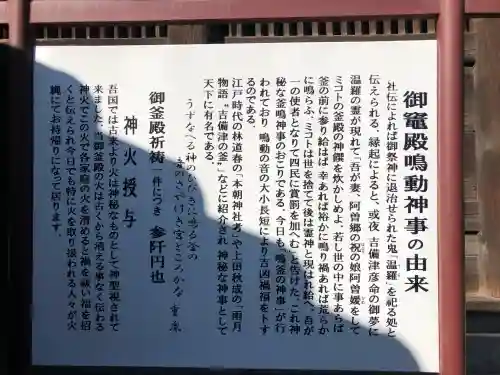 御竈殿鳴動神事の由来
社伝によれば御祭神に退治せられた鬼「温羅」を祀る処と
伝えられる、縁起によると、或夜 吉備津彦命の御夢に
温羅の霊が現れて「吾が妻、阿曽郷の祝の娘阿曽媛をして
ミコトの釜殿の神饌を炊かしめよ、若し世の中に事あらば
釜の前に参り給はば 幸あれば裕かに鳴り禍あれば荒らか
に鳴らふ、ミコトは世を捨てて後は霊神と現はれ給へ。吾が
一の使者となりて四民に賞罰を加へむ」と告げた、これ神
秘な釜鳴神事のおこりである、今日も「鳴釜の神事」が行
われており 鳴動の音の大小長短により吉凶禍福を卜す
るのである。
江戸時代の林道春の「本朝神社考」や上田秋成の「雨月
物語“吉備津の釜”」などに紹介され 神秘な神事として
天下に有名である。
うずなへる神のひびきにゆる釜の
さやけき宮どころかな
御釜殿祈祷 一件につき 参阡円也
神火授与
吾国では古来より火は神秘なものとして神聖視されて
来ました、当御釜殿の火は古くから消える事なく伝わる
神火でこの火で各家庭の火を清めると禍を祓い福を招
くと伝えられ今日でも特に火を取り扱われる人々が火
縄にてお持帰りになって居ります。